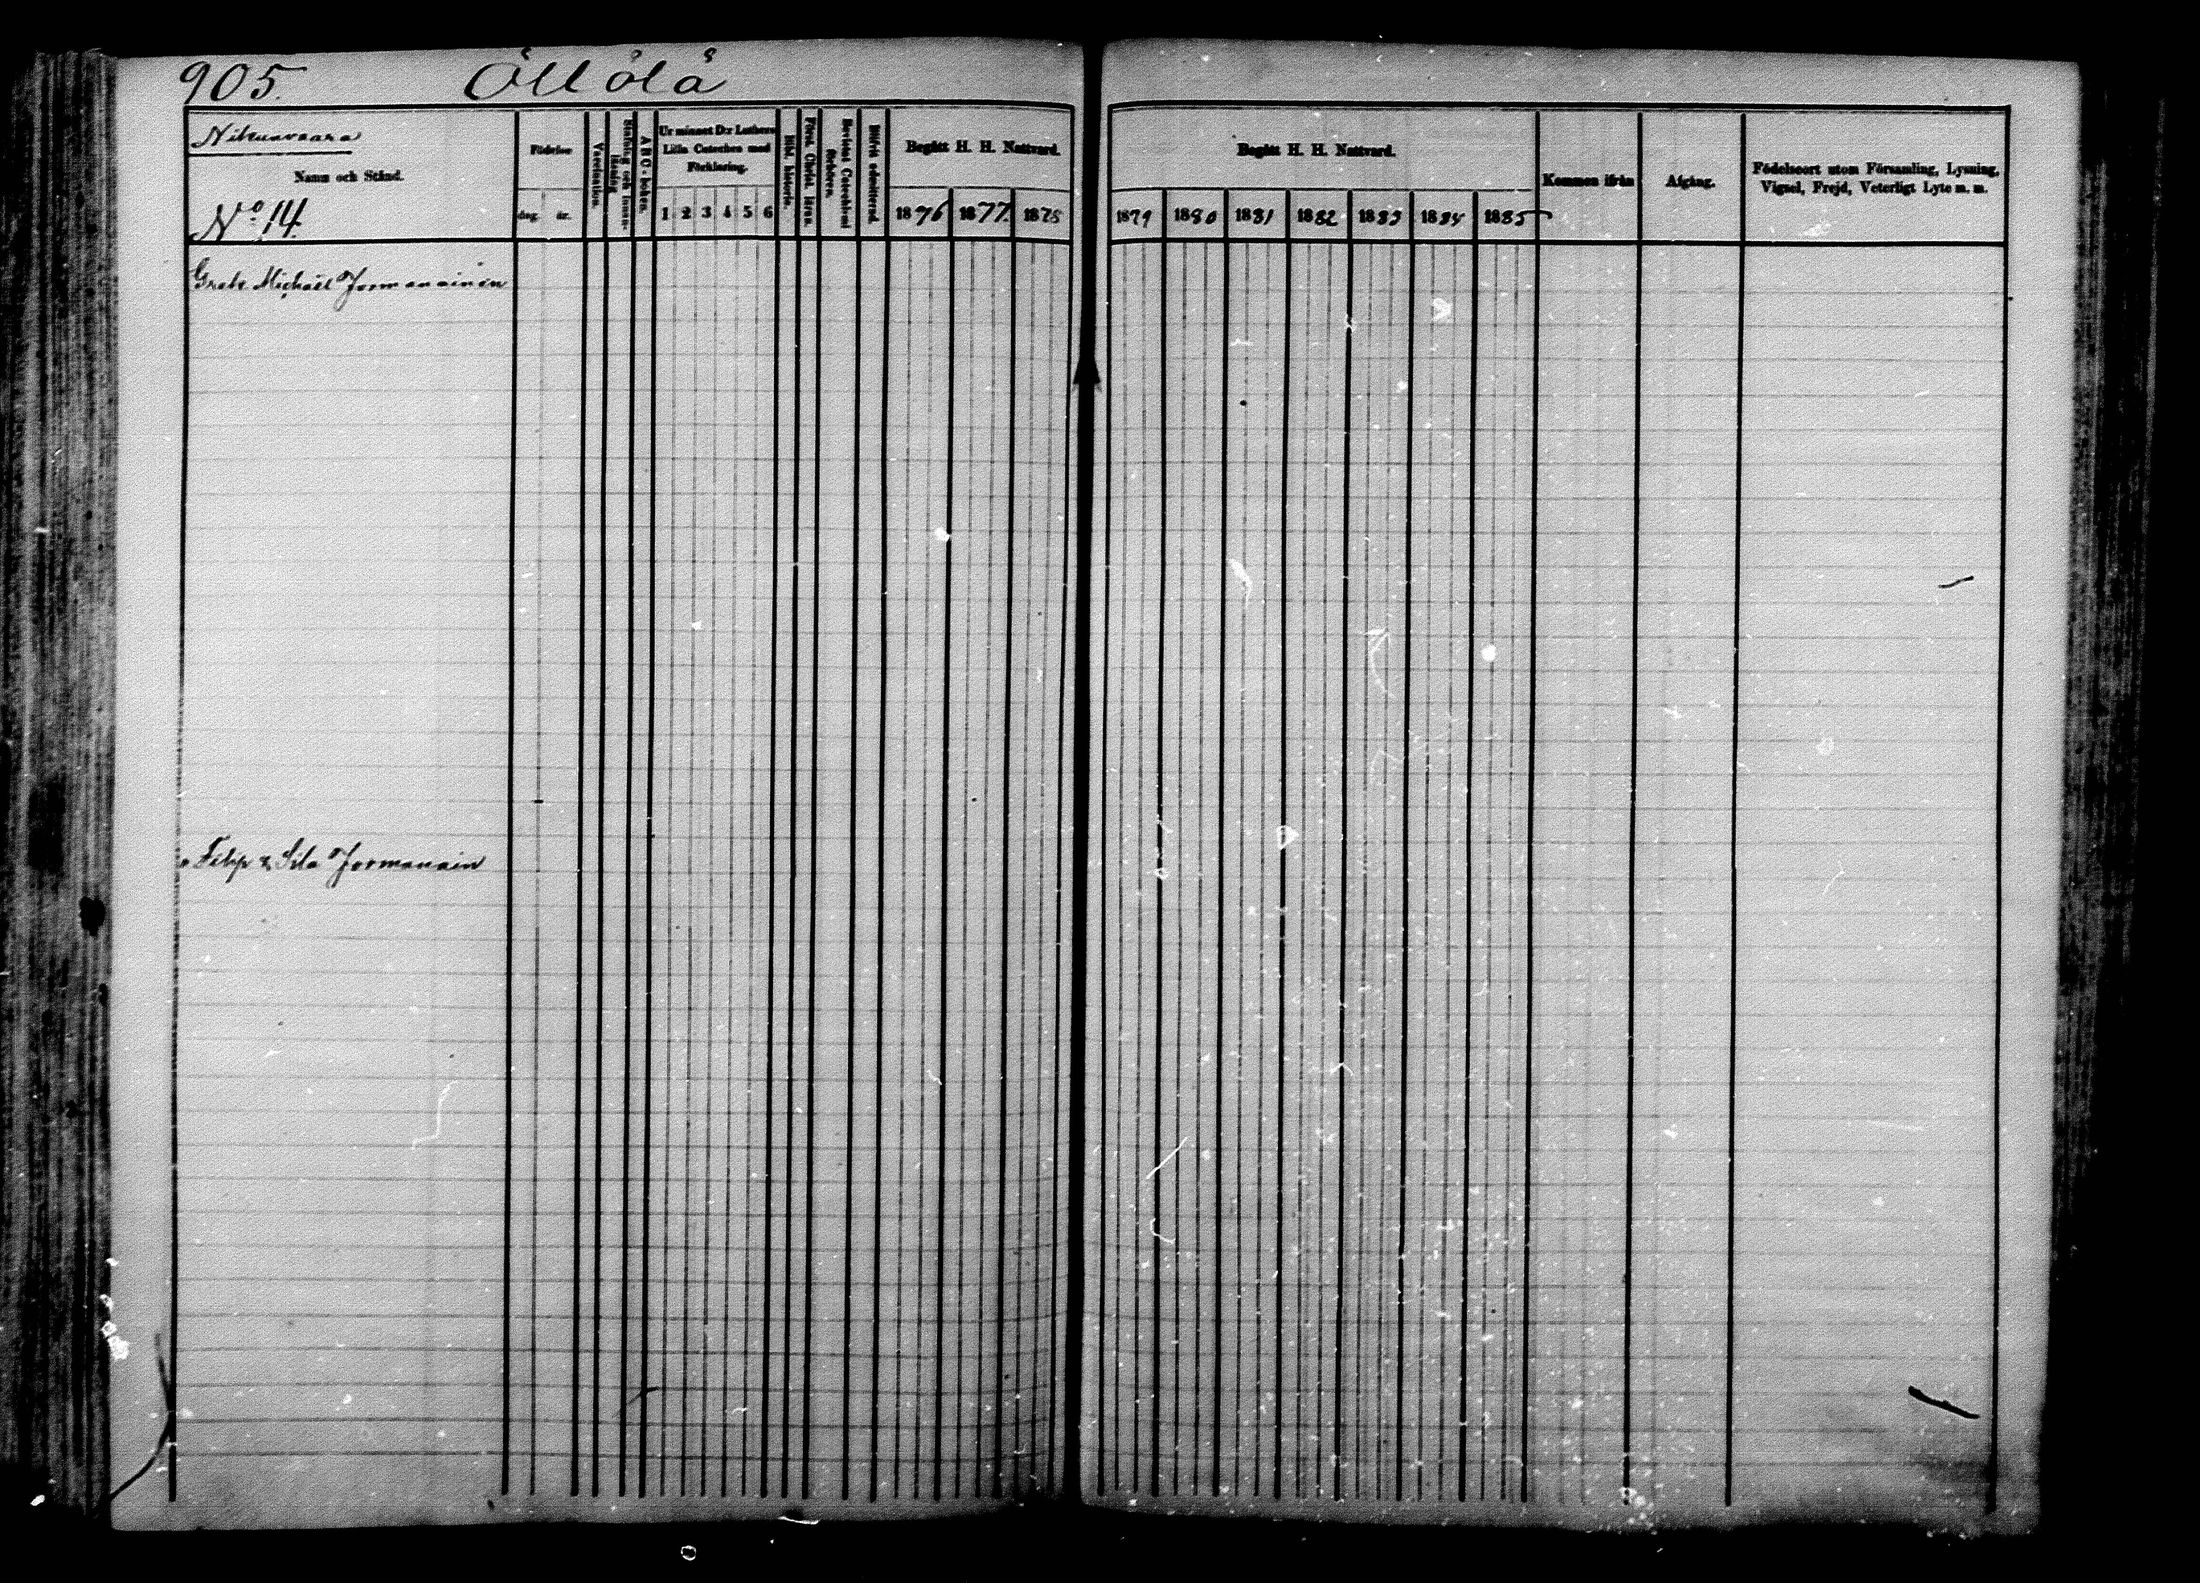 905. Öllölä
Nikunvaara
Namn och Stånd.
No 14.
Födelse
dag. år.
Vaccination.
Stafning och Innanläsning.
A B C-boken.
Ur minnet D:r Luthers
Lilla Catechес med
Förklaring.
1 2 3 4 5 6
Bibl. historie.
Först. Christ. läran.
Bevistat Catechismi
förhören.
Blifvit admitterad.
Begått H. H. Nattvard.
1876 1877. 1878
Begått H. H. Nattvard.
1879 1880 1881 1882 1883 1884 1885
Kommen ifrån
Afgång.
Födelseort utom Församling, Lysning,
Vigsel, Frejd, Veterligt Lyte m. m.
Michaël Jormanainen
Filip & Sila Jormanain